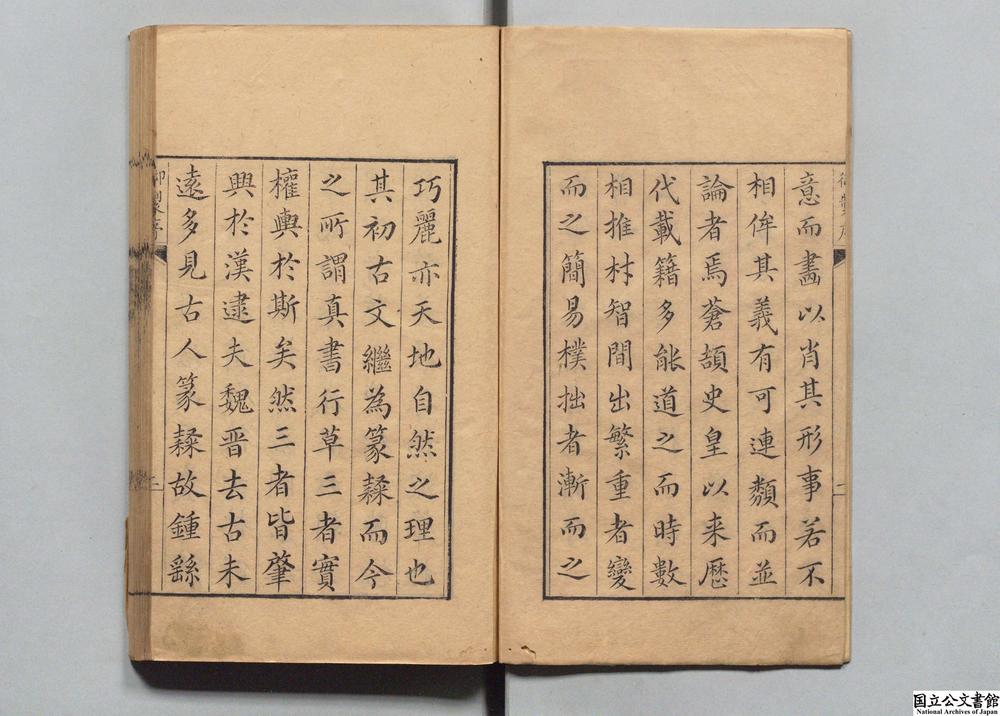 意而畫以肖其形事若不
相侔其義有可連類而並
論者焉蒼頡史皇以来歷
代載籍多能道之而時數
相推材智間出繁重者變
而之簡易樸拙者漸而之
巧麗亦天地自然之理也
其初古文繼為篆隸而今
之所謂真書行草三者實
權輿於斯矣然三者皆肇
興於漢逮夫魏晉去古未
遠多見古人篆隸故鍾繇
御製序
二
国立公文書館
National Archives of Japan